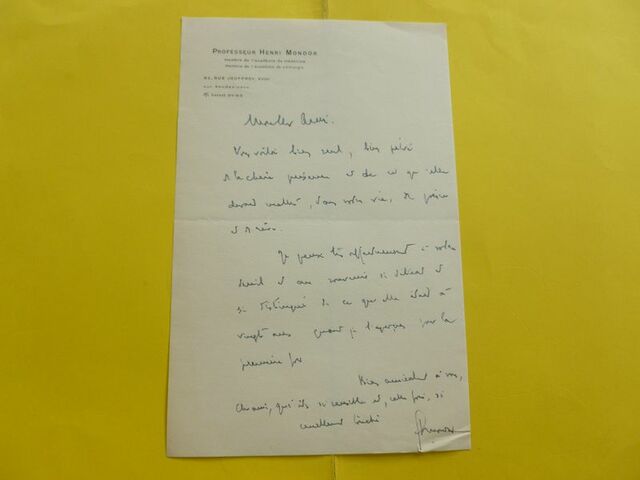 PROFESSEUR HENRI MONDOR
Membre de l'académie de médecine
Membre de l'académie de chirurgie
RUE JOUFFROY, XVIIe
Mon cher
Vous voilà bien seul, bien privé
de la chère présence et de ce qu'elle
devait mettre, dans votre vie, de
et de
Je pense très affectueusement à votre
deuil et aux souvenirs si délicat et
si distingué de ce que elle était à
vingt ans quand je l'aperçus pour la
première fois
Bien amicalement à vous,
cher ami, qui êtes si sensible et, cette fois, si
cruellement touché